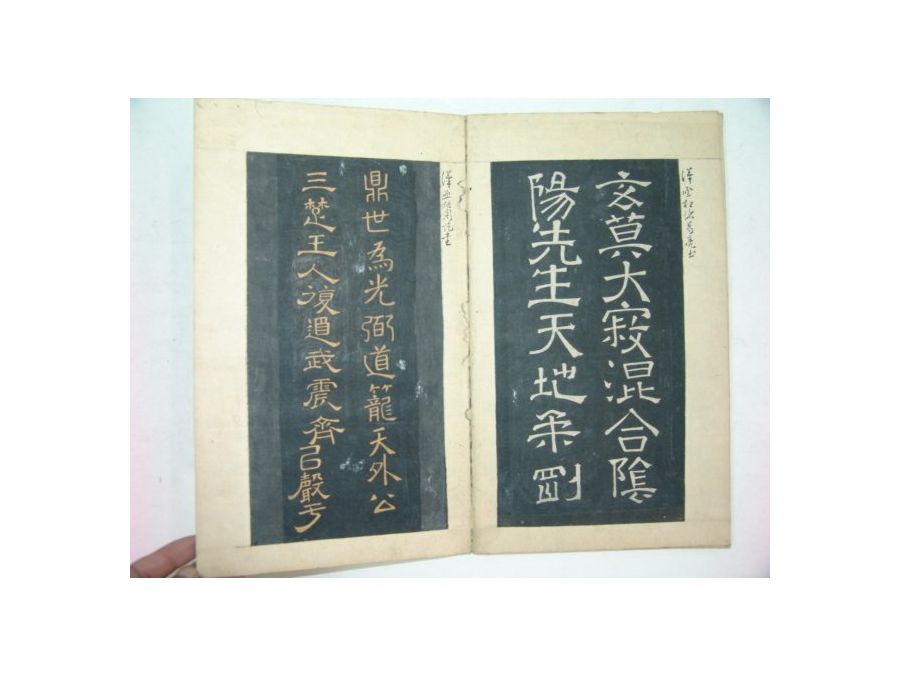 玄莫大寂混合陰
陽先生天地柔剛
鼎世為光弼道籠天外公
三楚王人復道武震齊